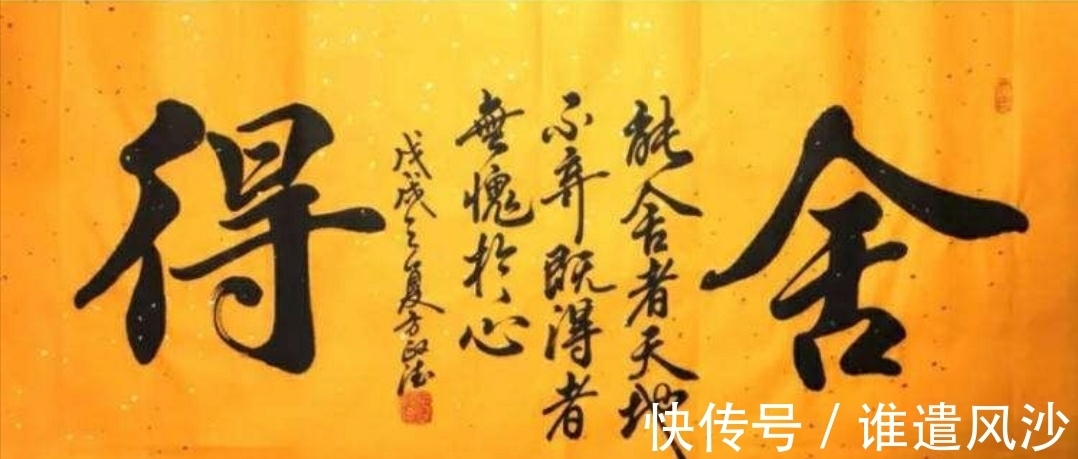 舍
能舍者天地
不弃既得者
無愧於心
戊戌之夏方政德
得
快传号 / 谁遣风沙